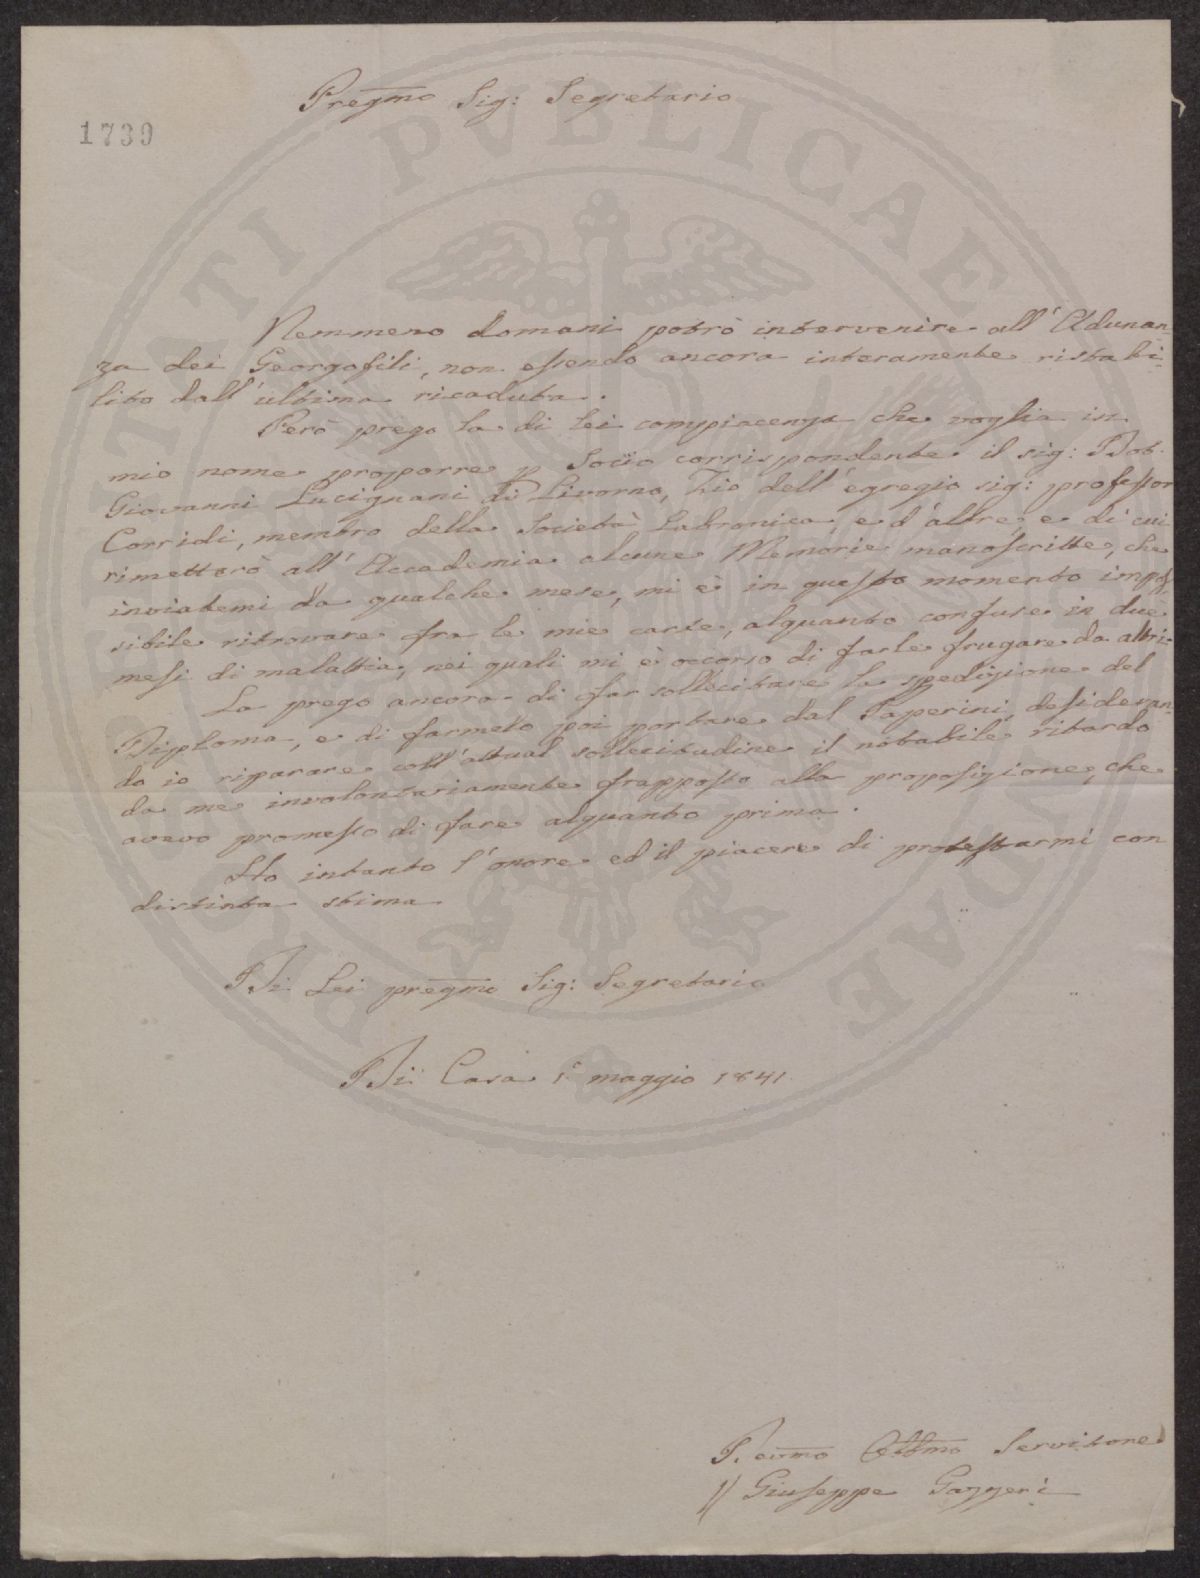 Pregmo Sig: Segretario
1739
Nemmeno domani potrò intervenire all'Adunan-
za dei Georgofili, non essendo ancora interamente ristabi-
lito dall'ultima ricaduta.
Però prego la di lei compiacenza che voglia in
mio nome proporre p Socio corrispondente il sig: Dot.
Giovanni Lucignani di Livorno, Zio dell'egregio sig: professor
Corridi, membro della Società Labronica, e d'altre, e di cui
rimetterò all'Accademia alcune Memorie manoscritte, che
inviatemi da qualche mese, mi è in questo momento impos-
sibile ritrovare fra le mie carte, alquanto confuse in due
mesi di malattia, nei quali mi è occorso di farle frugare da altri.
La prego ancora di far sollecitare la spedizione del
Diploma, e di farmelo poi portare dal Paperini, desideran-
do io riparare coll'attual sollecitudine il notabile ritardo
da me involontariamente frapposto alla proposizione, che
avevo promesso di fare alquanto prima.
Ho intanto l'onore ed il piacere di protestarmi con
distinta stima
Di Lei pregmo Sig: Segretario
Di Casa 1° maggio 1841
Devmo Obbmo Servitore
Giuseppe Gazzeri
PVBLICAE